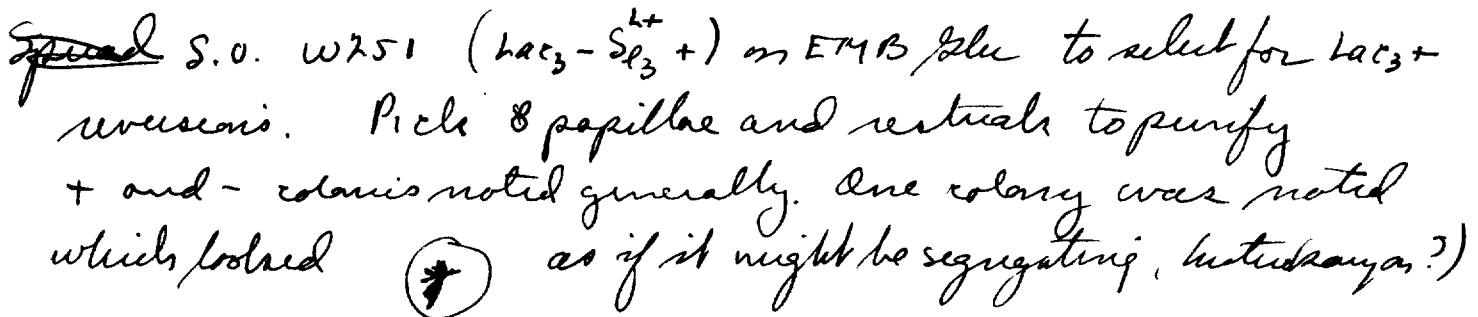 S.O. W251 (Lac₃- +) on EMB to select for Lac₃+
reversions. Pick 8 papillae and restreak to purify
+ and - colonies noted generally. One colony was noted
which looked as if it might be segregating,